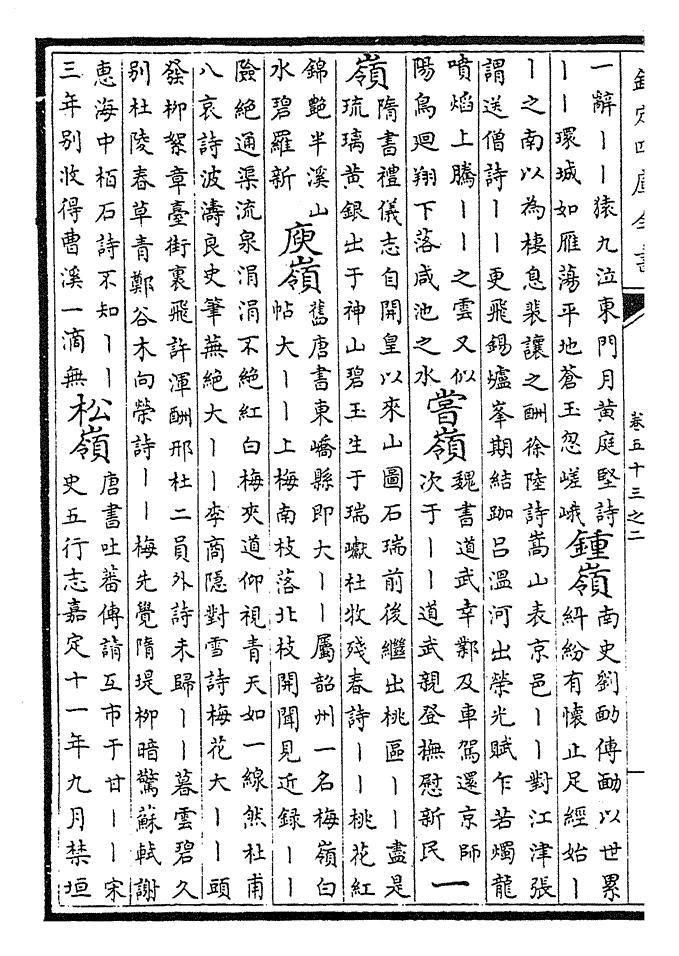 欽定四庫全書
卷五十三之二
一辭丨丨猿九泣東門月黃庭堅詩
丨丨環城如雁蕩平地蒼玉忽嵯峨
鍾嶺
南史劉勔傳勔以世累
糾紛有懷止足經始丨
丨之南以為棲息裴讓之酬徐陸詩嵩山表京邑丨丨對江津張
謂送僧詩丨丨更飛錫爐峯期結跏呂溫河出榮光賦乍若燭龍
噴焰上騰丨丨之雲又似
陽烏迴翔下落咸池之水
嘗嶺
魏書道武幸鄴及車駕還京師
次于丨丨道武親登撫慰新民
一
嶺
隋書禮儀志自開皇以來山圖石瑞前後繼出桃區丨丨盡是
琉璃黃銀出于神山碧玉生于瑞巘杜牧殘春詩丨丨桃花紅
錦艷半溪山
水碧羅新
庾嶺
舊唐書東嶠縣即大丨丨屬韶州一名梅嶺白
帖大丨丨上梅南枝落北枝開聞見近録丨丨
險絶通渠流泉涓涓不絶紅白梅夾道仰視青天如一線然杜甫
八哀詩波濤良史筆蕪絶大丨丨李商隱對雪詩梅花大丨丨頭
發柳絮章臺街裏飛許渾酬邢杜二員外詩未歸丨丨暮雲碧久
别杜陵春草青鄭谷木向榮詩丨丨梅先覺隋堤柳暗驚蘇軾謝
惠海中栢石詩不知丨丨
三年别收得曹溪一滴無
松嶺
唐書吐蕃傳請互市于甘丨丨宋
史五行志嘉定十一年九月禁垣